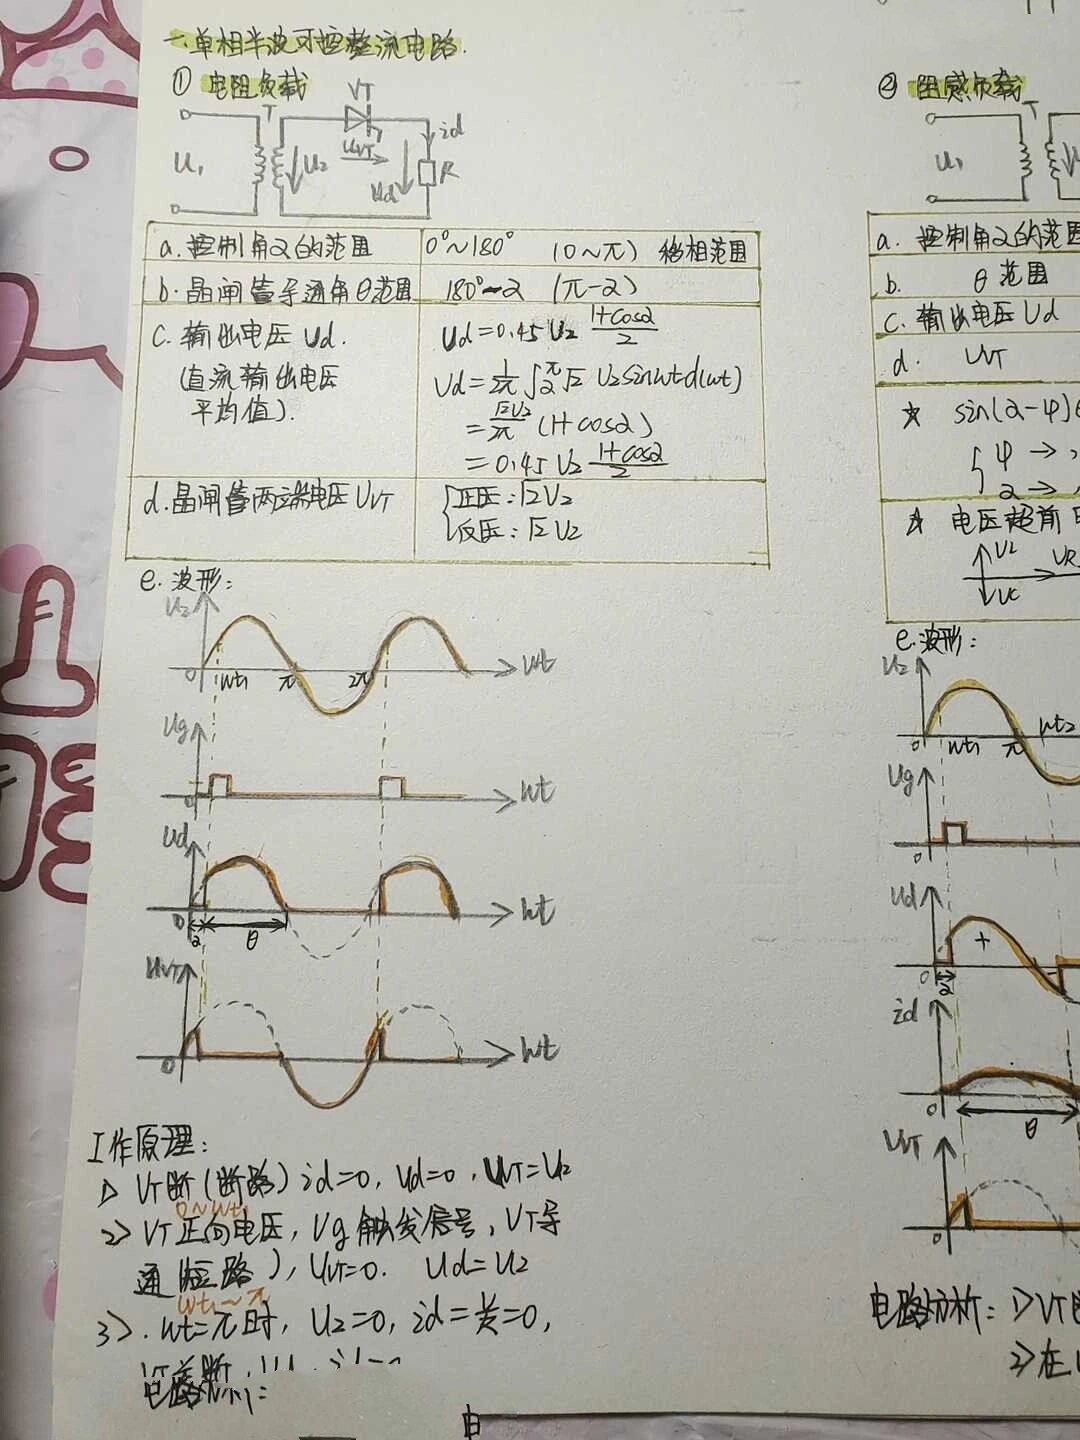 一、单相半波可控整流电路.
① 电阻负载
VT
T
id
U₁
U₂
UVT
Ud
R
a. 控制角α的范围 0°~180° (0~π) 移相范围
b. 晶闸管导通角θ范围 180°-α (π-α)
c. 输出电压 Ud.
(直流输出电压
平均值).
Ud=0.45 U₂ (1+cosα)/2
Ud = 1/2π ∫α^π √2 U₂sinωtd(ωt)
= √2U₂/2π (1+cosα)
= 0.45 U₂ (1+cosα)/2
d. 晶闸管两端电压 UVT
{正压: √2U₂
反压: √2U₂
e. 波形:
U₂
0 ωt₁ π 2π ωt
Ug
0 ωt
Ud
0 α θ ωt
UVT
0 ωt
工作原理:
1> VT断(断路) id=0, Ud=0, UVT=U₂
0~ωt₁
2> VT正向电压, Ug触发信号, VT导
通(短路), UVT=0. Ud=U₂
ωt₁~π
3>. ωt=π时, U₂=0, id=
=0,
② 阻感负载
T
U₁
a. 控制角α的范围
b. θ 范围
c. 输出电压 Ud
d. UVT
☆ sin(α-φ)
{φ →
α →
☆ 电压超前
UL
UR
UC
e. 波形:
U₂
0 ωt₁ π ωt₂
Ug
0
Ud
+
0 α
id
0 θ
UVT
0
电路分析: 1> VT
2> 在